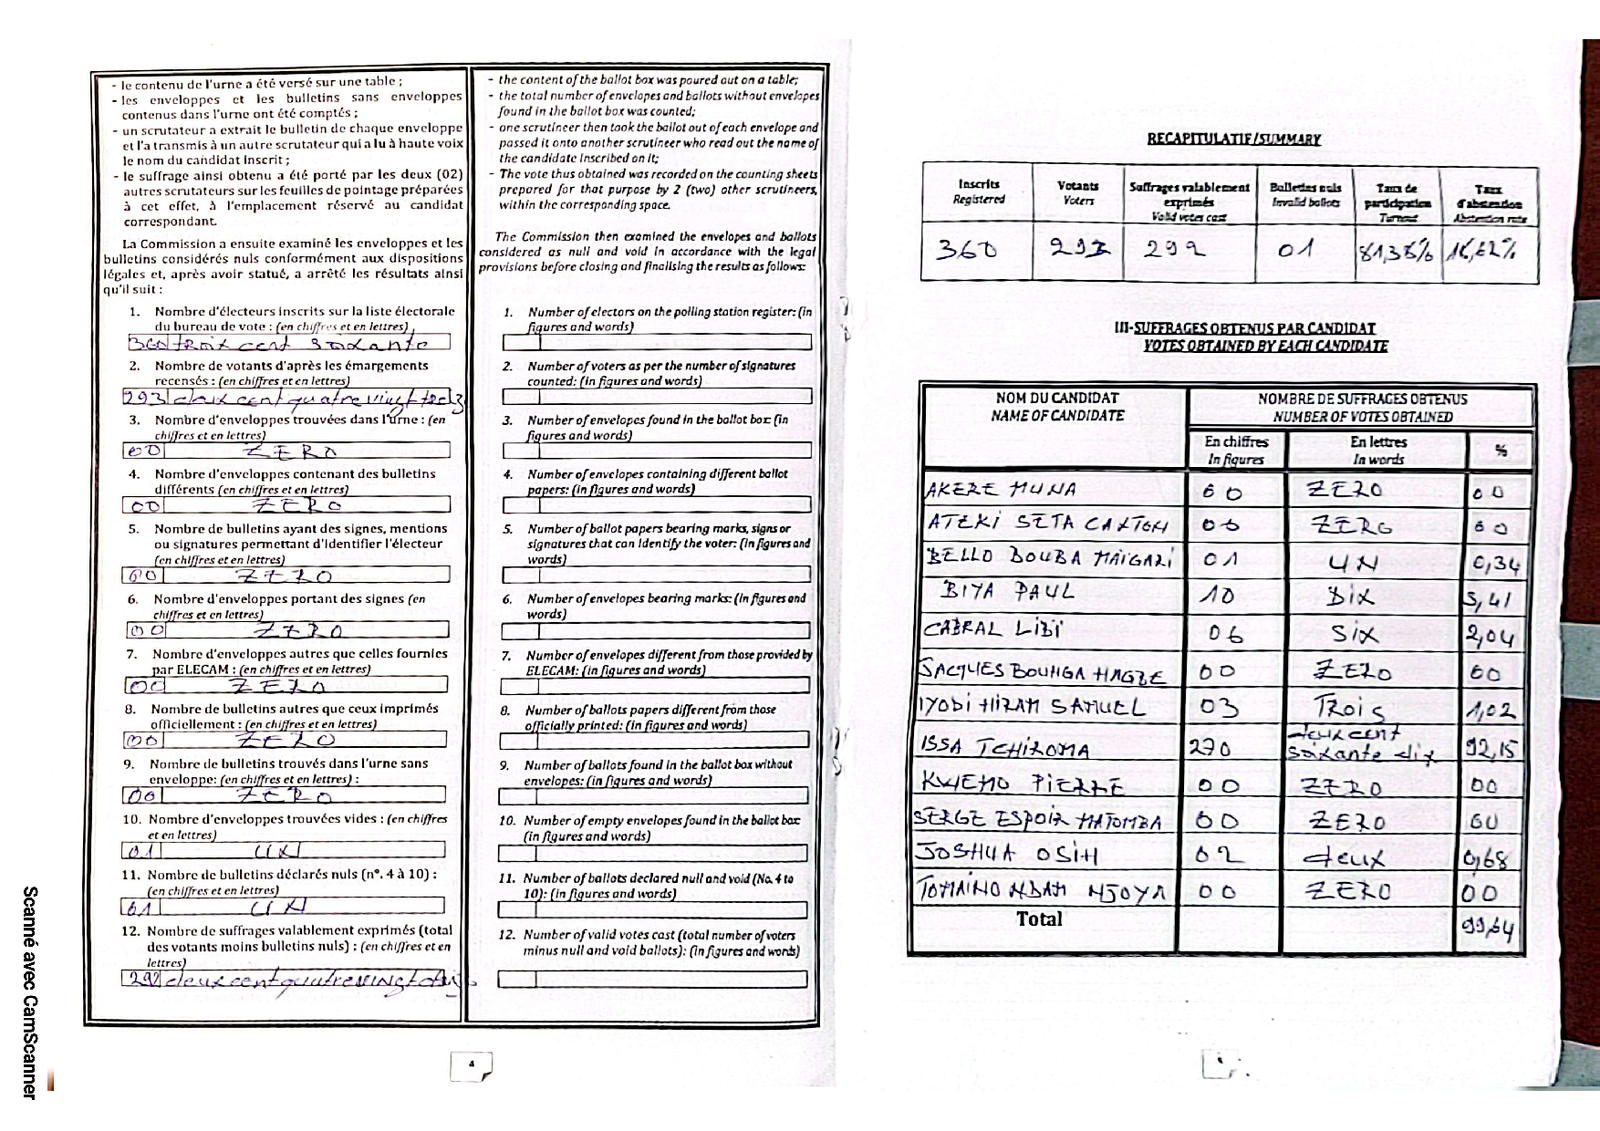 - le contenu de l'urne a été versé sur une table ;
- les enveloppes et les bulletins sans enveloppes
contenus dans l'urne ont été comptés ;
- un scrutateur a extrait le bulletin de chaque enveloppe
et l'a transmis à un autre scrutateur qui a lu à haute voix
le nom du candidat inscrit ;
- le suffrage ainsi obtenu a été porté par les deux (02)
autres scrutateurs sur les feuilles de pointage préparées
à cet effet, à l'emplacement réservé au candidat
correspondant.
La Commission a ensuite examiné les enveloppes et les
bulletins considérés nuls conformément aux dispositions
légales et, après avoir statué, a arrêté les résultats ainsi
qu'il suit :
1. Nombre d'électeurs inscrits sur la liste électorale
du bureau de vote : (en chiffres et en lettres)
360 troix cent soixante
2. Nombre de votants d'après les émargements
recensés : (en chiffres et en lettres)
293 deux cent quatre vingt
3. Nombre d'enveloppes trouvées dans l'urne : (en
chiffres et en lettres)
00 ZERO
4. Nombre d'enveloppes contenant des bulletins
différents (en chiffres et en lettres)
00 ZERO
5. Nombre de bulletins ayant des signes, mentions
ou signatures permettant d'identifier l'électeur
(en chiffres et en lettres)
00 ZERO
6. Nombre d'enveloppes portant des signes (en
chiffres et en lettres)
00 ZERO
7. Nombre d'enveloppes autres que celles fournies
par ELECAM : (en chiffres et en lettres)
00 ZERO
8. Nombre de bulletins autres que ceux imprimés
officiellement : (en chiffres et en lettres)
00 ZERO
9. Nombre de bulletins trouvés dans l'urne sans
enveloppe: (en chiffres et en lettres) :
00 ZERO
10. Nombre d'enveloppes trouvées vides : (en chiffres
et en lettres)
01 UN
11. Nombre de bulletins déclarés nuls (n°. 4 à 10) :
(en chiffres et en lettres)
01 UN
12. Nombre de suffrages valablement exprimés (total
des votants moins bulletins nuls) : (en chiffres et en
lettres)
292 deux cent quatre vingt
- the content of the ballot box was poured out on a table;
- the total number of envelopes and ballots without envelopes
found in the ballot box was counted;
- one scrutineer then took the ballot out of each envelope and
passed it onto another scrutineer who read out the name of
the candidate inscribed on it;
- The vote thus obtained was recorded on the counting sheets
prepared for that purpose by 2 (two) other scrutineers,
within the corresponding space.
The Commission then examined the envelopes and ballots
considered as null and void in accordance with the legal
provisions before closing and finalising the results as follows:
1. Number of electors on the polling station register: (in
figures and words)
2. Number of voters as per the number of signatures
counted: (in figures and words)
3. Number of envelopes found in the ballot box: (in
figures and words)
4. Number of envelopes containing different ballot
papers: (in figures and words)
5. Number of ballot papers bearing marks, signs or
signatures that can identify the voter: (in figures and
words)
6. Number of envelopes bearing marks: (in figures and
words)
7. Number of envelopes different from those provided by
ELECAM: (in figures and words)
8. Number of ballots papers different from those
officially printed: (in figures and words)
9. Number of ballots found in the ballot box without
envelopes: (in figures and words)
10. Number of empty envelopes found in the ballot box
(in figures and words)
11. Number of ballots declared null and void (No. 4 to
10): (in figures and words)
12. Number of valid votes cast (total number of voters
minus null and void ballots): (in figures and words)
4
RECAPITULATIF/SUMMARY
Inscrits Votants Suffrages valablement exprimés Bulletins nuls Taux de participation Taux d'abstention
Registered Voters Valid votes cast Invalid ballots Turnout Abstention rate
360 293 292 01
III-SUFFRAGES OBTENUS PAR CANDIDAT
VOTES OBTAINED BY EACH CANDIDATE
NOM DU CANDIDAT NOMBRE DE SUFFRAGES OBTENUS
NAME OF CANDIDATE NUMBER OF VOTES OBTAINED
En chiffres En lettres %
In figures In words
AKERE MUNA 00 ZERO 00
ATEKI SETA CAXTON 00 ZERO 00
BELLO BOUBA MAIGARI 01 UN 0,34
BIYA PAUL 10 Dix
CABRAL LIBI 06 Six 2,04
JACQUES BOUNGA HAGBE 00 ZERO 00
IYODI HIRAM SAMUEL 03 Trois 1,02
ISSA TCHIROMA 270 deux cent soixante dix 92,15
KWEMO PIERRE 00 ZERO 00
SERGE ESPOIR MATOMBA 00 ZERO 00
JOSHUA OSIH 02 deux 0,68
TOMAINO NDAM NJOYA 00 ZERO 00
Total 99,64
Scanné avec CamScanner